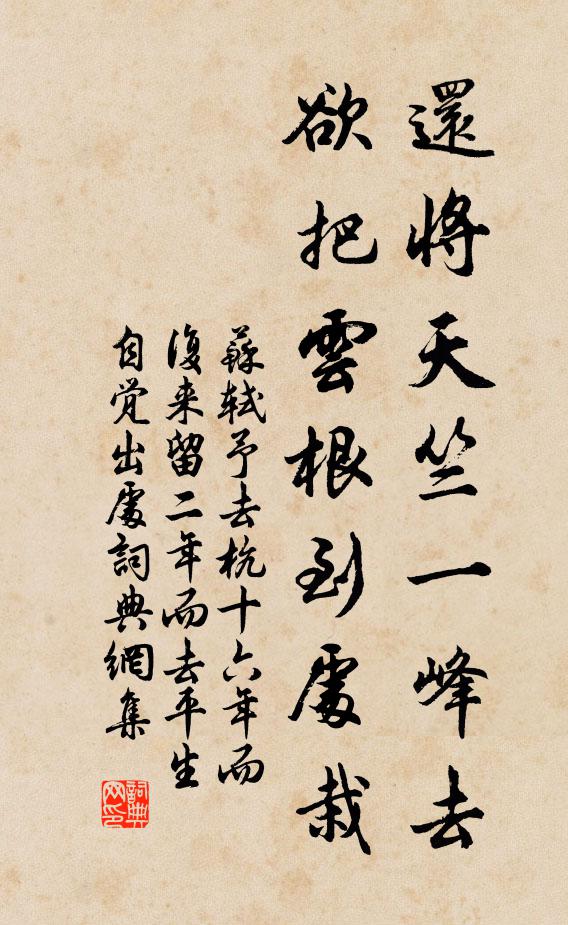 還將天竺一峰去
欲把雲根到處栽
蘇軾予去杭十六年而
復来留二年而去平生
自覚出處詞典網集
詞典
网印